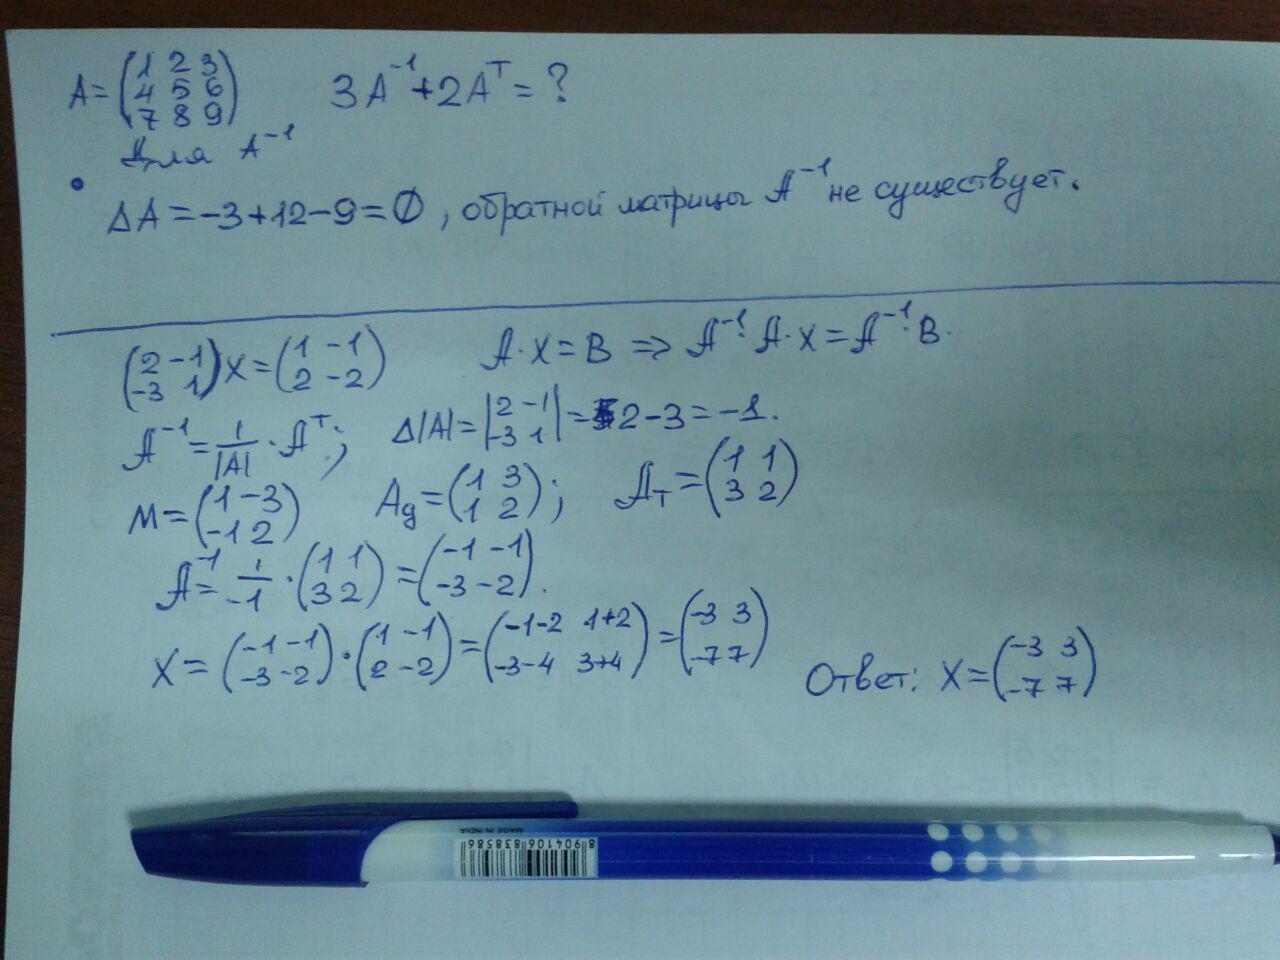 A = (1 2 3 / 4 5 6 / 7 8 9)   3A⁻¹+2Aᵀ = ?
Для A⁻¹
• ΔA = -3+12-9 = 0, обратной матрицы A⁻¹ не существует.
(2 -1 / -3 1) X = (1 -1 / 2 -2)   A·X = B => A⁻¹·A·X = A⁻¹·B.
A⁻¹ = 1/|A| · Aᵀ;   Δ|A| = |2 -1 / -3 1| = 2-3 = -1.
M = (1 -3 / -1 2)   Ag = (1 3 / 1 2);   Aт = (1 1 / 3 2)
A⁻¹ = 1/-1 · (1 1 / 3 2) = (-1 -1 / -3 -2).
X = (-1 -1 / -3 -2) · (1 -1 / 2 -2) = (-1-2 1+2 / -3-4 3+4) = (-3 3 / -7 7)
Ответ: X = (-3 3 / -7 7)
MADE IN INDIA
8 904106 838586